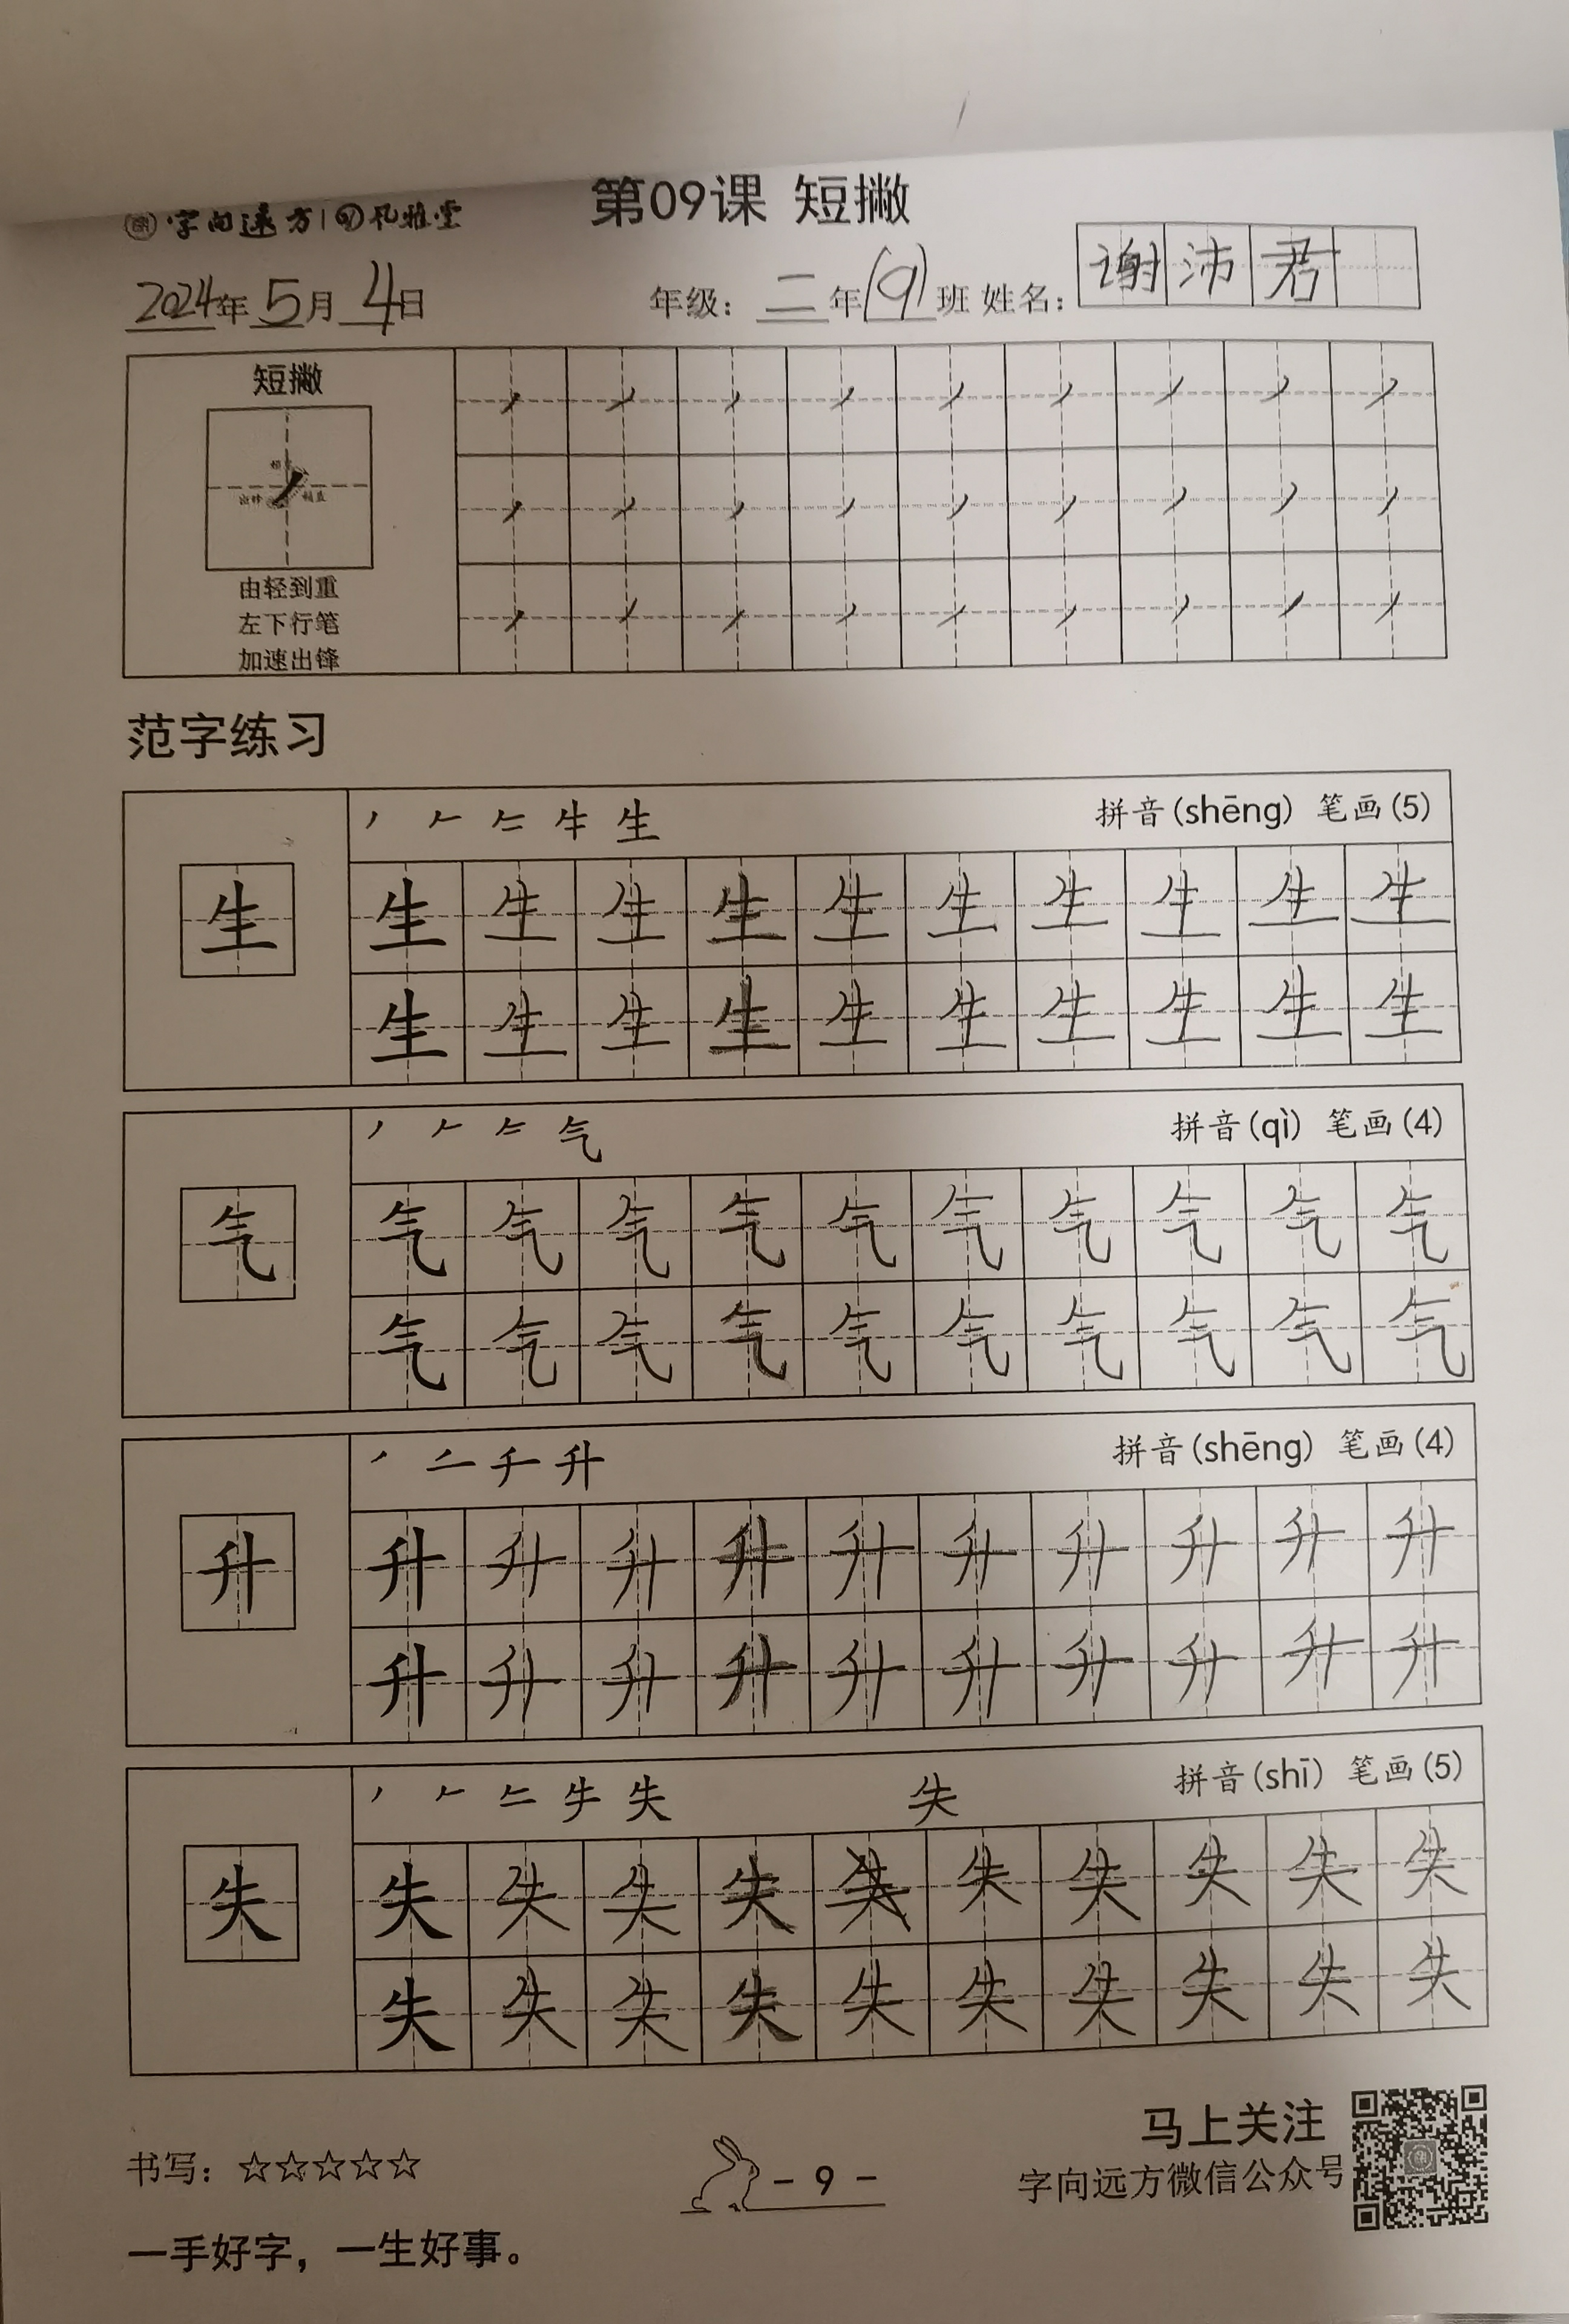 字向远方 风雅堂
第09课 短撇
2024年5月4日 年级：二年(9)班 姓名：谢沛君
短撇
由轻到重
左下行笔
加速出锋
范字练习
生 拼音(shēng) 笔画(5)
生 生 生 生 生 生 生 生 生 生 生
生 生 生 生 生 生 生 生 生 生
气 拼音(qì) 笔画(4)
气 气 气 气 气 气 气 气 气 气 气
气 气 气 气 气 气 气 气 气 气
升 拼音(shēng) 笔画(4)
升 升 升 升 升 升 升 升 升 升 升
升 升 升 升 升 升 升 升 升 升
失 失 拼音(shī) 笔画(5)
失 失 失 失 失 失 失 失 失 失 失
失 失 失 失 失 失 失 失 失 失
书写：☆☆☆☆☆
- 9 -
马上关注
字向远方微信公众号
一手好字，一生好事。